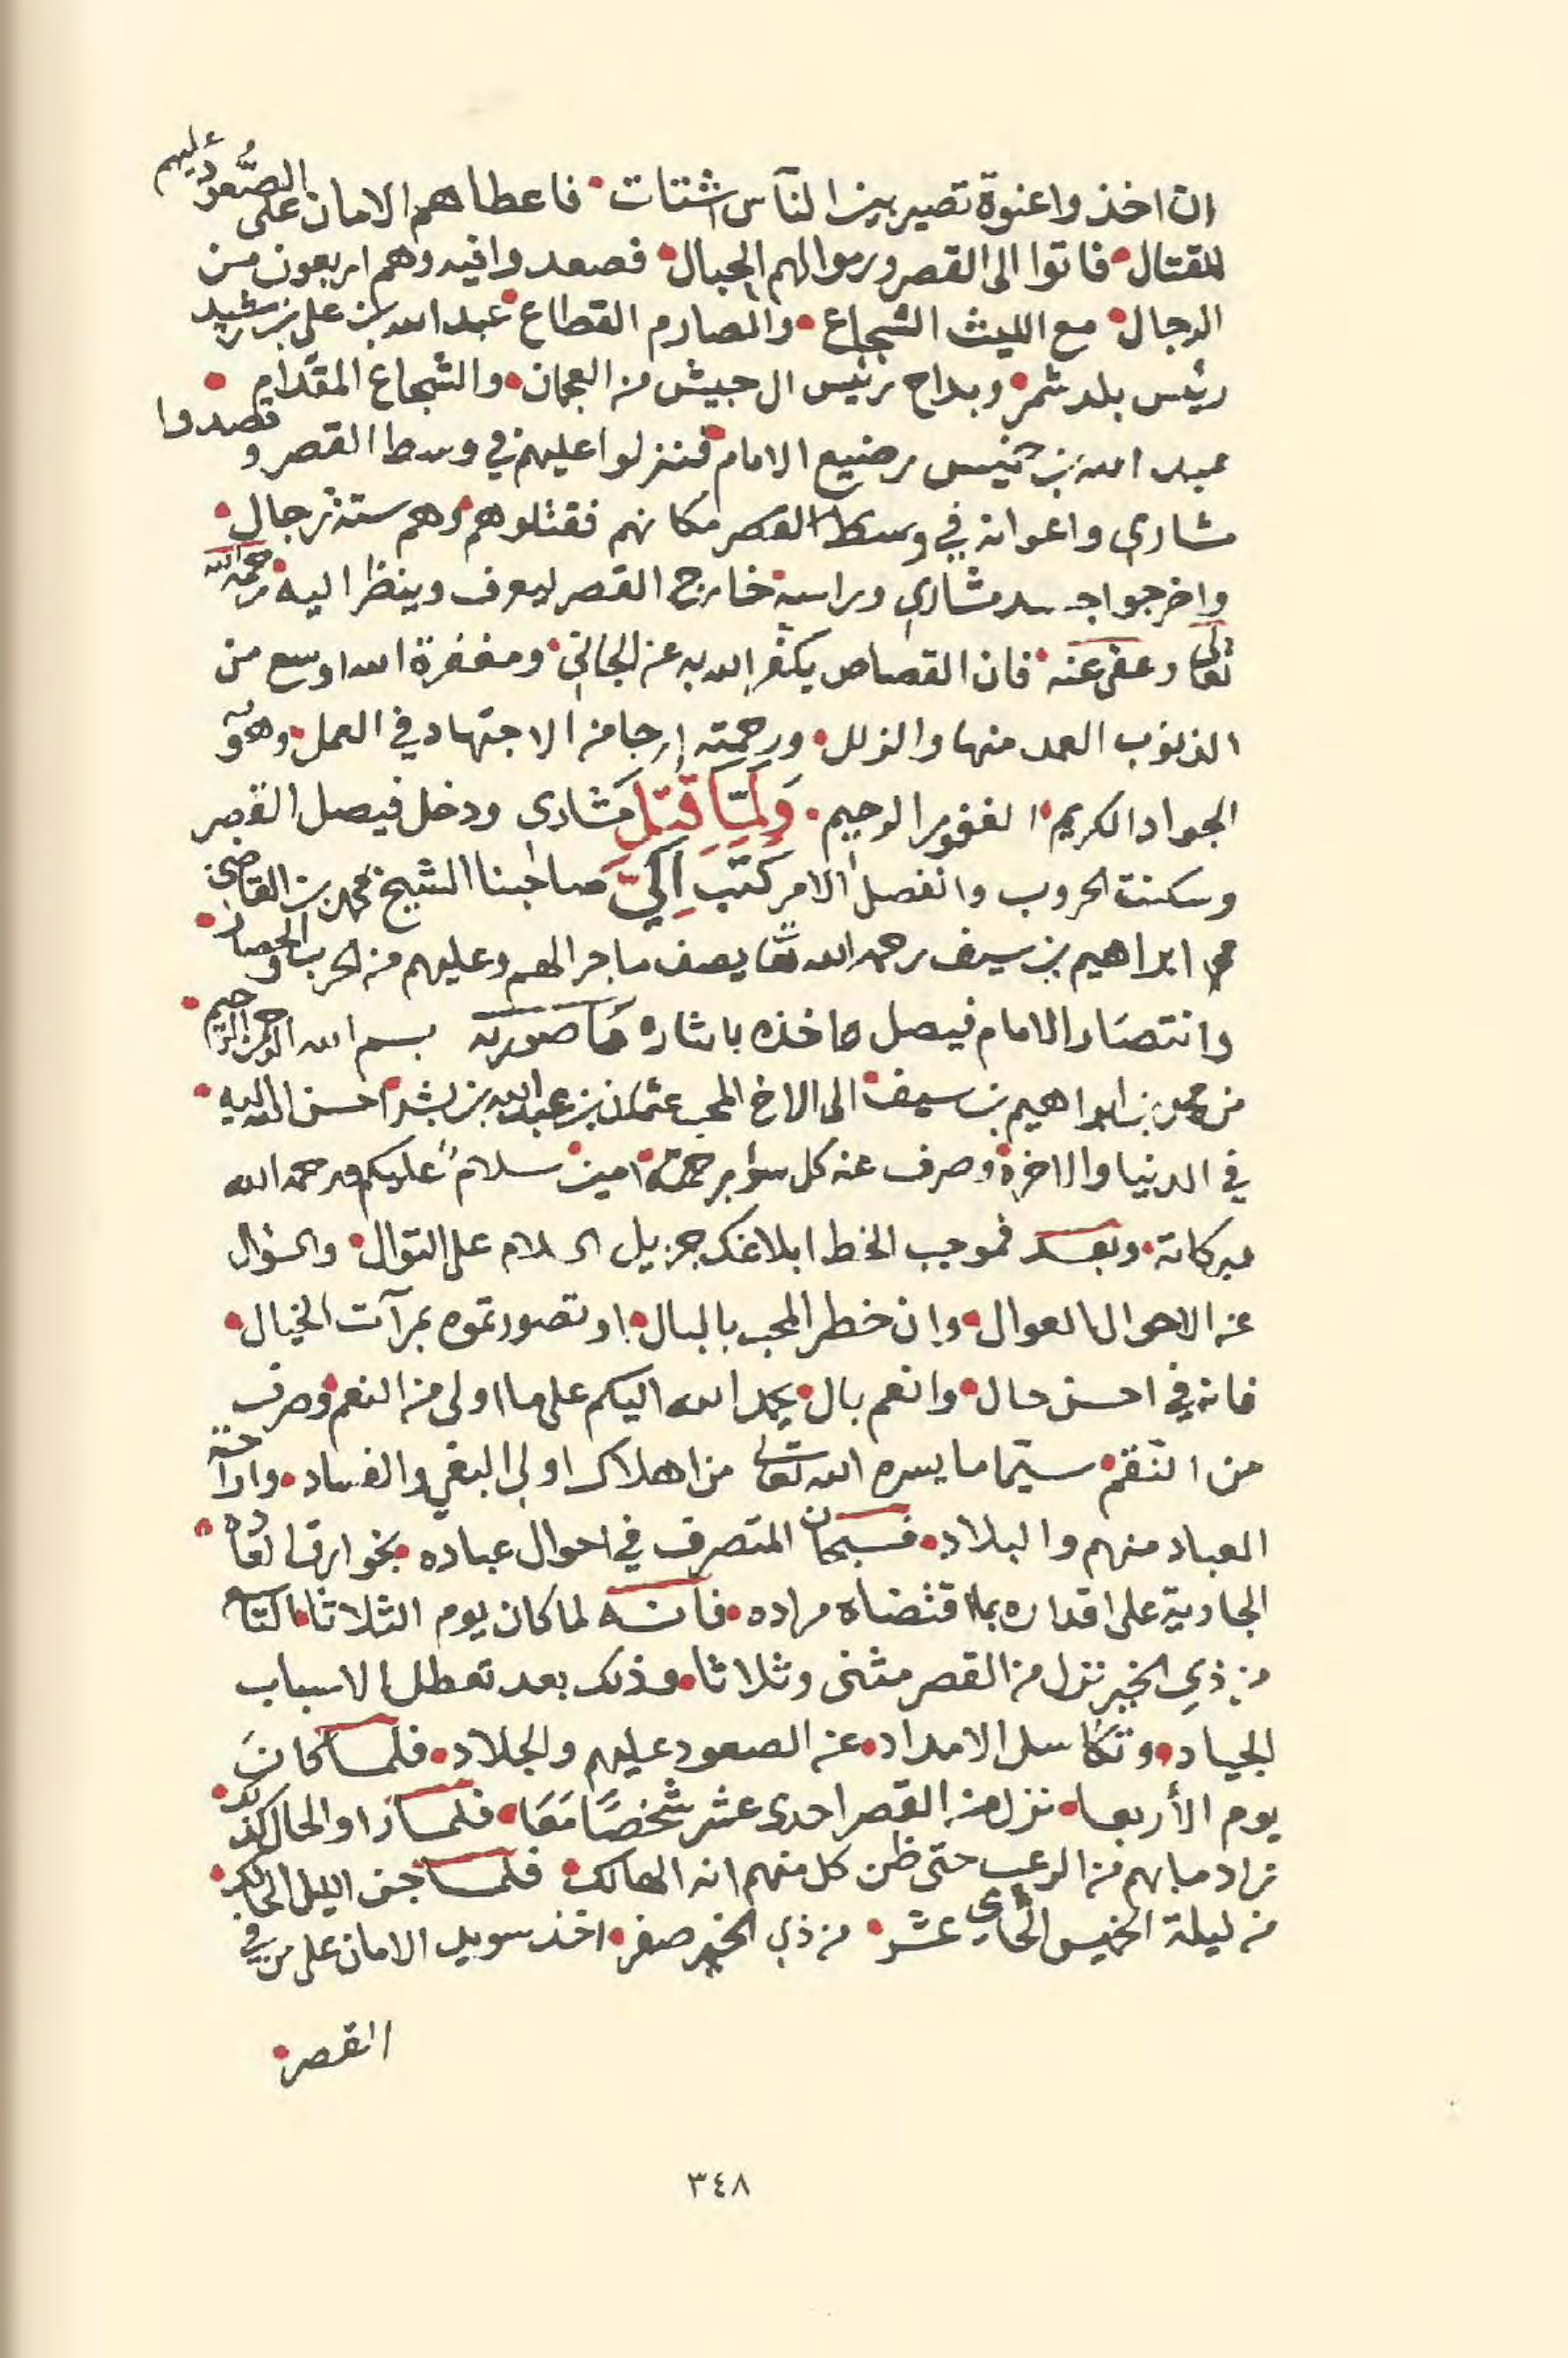 ان اخذوا عنوة تصير بين الناس اشتات فاعطاهم الامان على الصُّعود عليهم
للمقتال فاتوا الى القصر ورموا لهم الحبال فصعدوا فيه وهم اربعون من
الرجال مع الليث الشجاع والصارم القطاع عبد الله بن علي بن رشيد
رئيس بلد شمر وبداح رئيس ال حبيش من العجمان والشجاع المقدام
عبد الله بن خميس رضيع الامام فنزلوا عليهم في وسط القصر وقصدوا
مشاري واعوانه في وسط القصر مكانهم فقتلوهم وهم ستة رجال
واخرجوا جسد مشاري وراسه خارج القصر ليعرف وينظر اليه رحمه الله
تعالى وعفى عنه فان القصاص يكفر الله به عن الجاني ومغفرة الله اوسع من
الذنوب العمد منها والزلل ورحمته ارجا من الاجتهاد في العمل وهو
الجواد الكريم الغفور الرحيم وَلَمَّا قُتِلَ مشاري ودخل فيصل القصر
وسكنت الحروب وانفصل الامر كَتَبَ اِلَيَّ صاحبنا الشيخ محمد بن القاضي
ابراهيم بن سيف رحمه الله تعا يصف ما جرا لهم وعليهم من الحرب والحصار
وانتصار الامام فيصل واخذه بالثاره مَا صورته بسم الله الرحمن الرحيم
من محمد بن ابراهيم بن سيف الى الاخ المحب عثمان بن عبد الله بن بشر احسن الله اليه
في الدنيا والاخرة وصرف عنه كل سوا برحمته امين سلامٌ عليكم ورحمه الله
وبركاته وبعد فموجب الخط ابلاغك جزيل السلام على التوال والسؤال
عن الاحوال العوال وان خطر المحب بالبال او تصورتموه بمرآت الخيال
فانه في احسن حال وانعم بال يحمد الله اليكم على ما اولى من النعم وصرف
من النقم سيّما ما يسره الله تعالى من اهلاك اولي البغي والفساد واراحة
العباد منهم والبلاد فسبحان المتصرف في احوال عباده بخوارق العاده
الجارية على اقداره بما اقتضاه مراده فانه لما كان يوم الثلاثا التاسع
من ذي الخير نزل من القصر مثنى وثلاثا وذلك بعد تعطل الاسباب
الجياد وتكاسل الامداد عن الصعود عليهم والجلاد فلما كانَ
يوم الأربعا نزل من القصر احدى عشر شخصًا مَعَا فلما راوا الحال كذلك
زاد ما بهم من الرعب حتى ظن كل منهم انه الهالك فلما جن الليل الحالك
من ليلة الخميس الحادي عشر من ذي الخير صفر اخذ سويد الامان على من في
القصر
٣٤٨